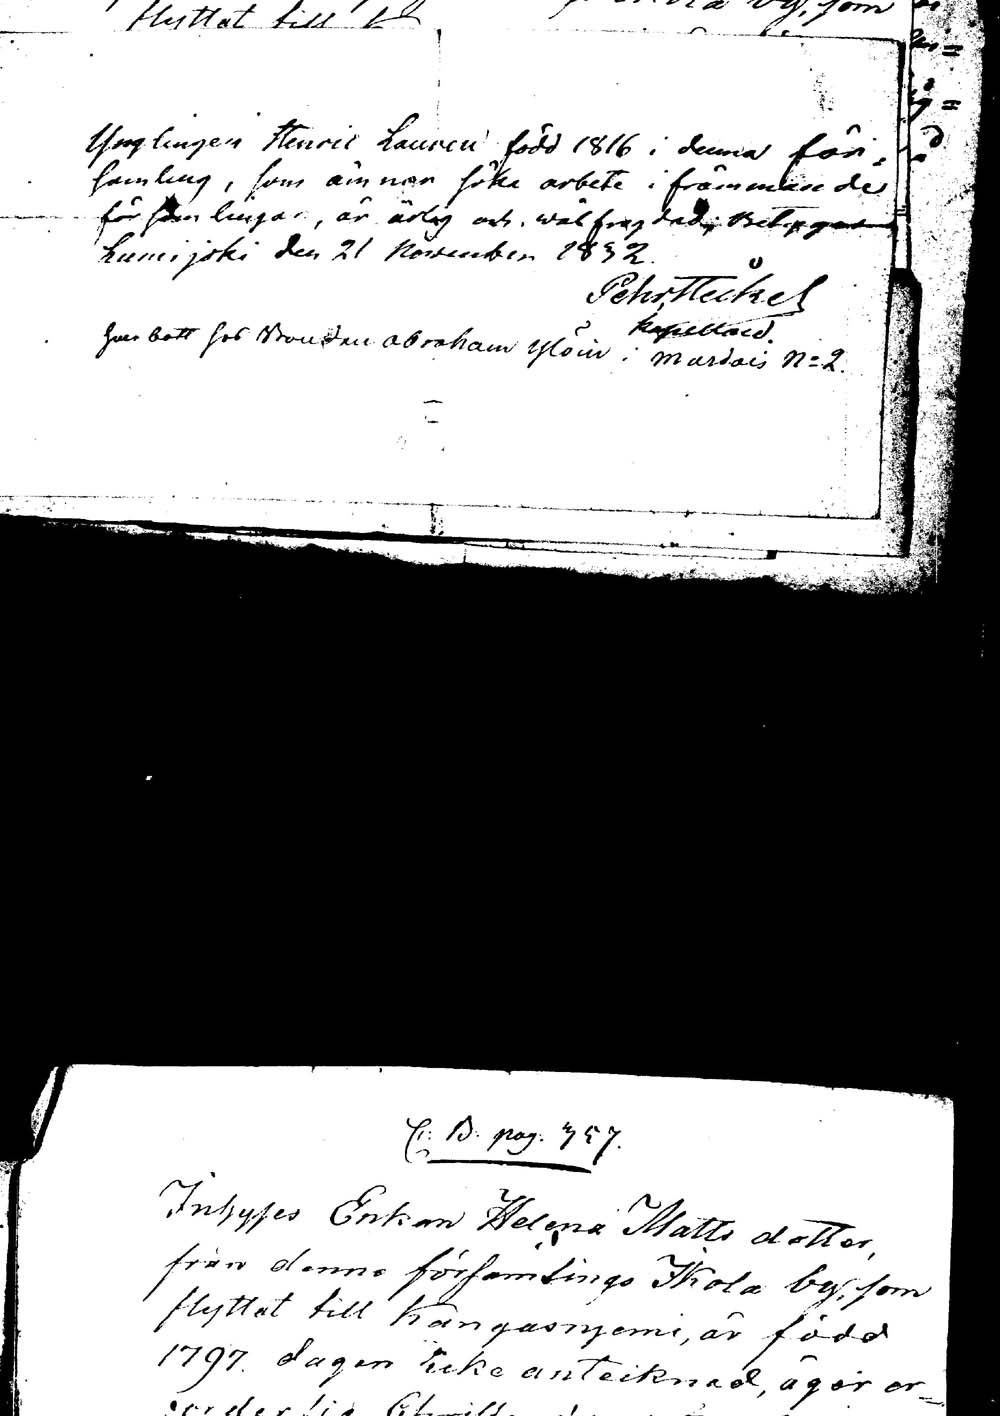 flyttat till
by, som
Ynglingen Henric Lauren född 1816 i denna för-
samling, som ämnar söka arbete i främmande
församlingar, är ärlig och wälfregdad; Betygar
Lumijoki den 21 November 1832.
Pehr Heickel
Kapelland.
har bott hos Bonden Abraham Ylöin i Mardais N=2.
C. B. pag. 357.
Inhyses Enkan Helena Matts dotter,
från denne församlings Ikola by, som
flyttat till Kangasnjemi, är född
1797. dagen icke anteiknad, äger er-